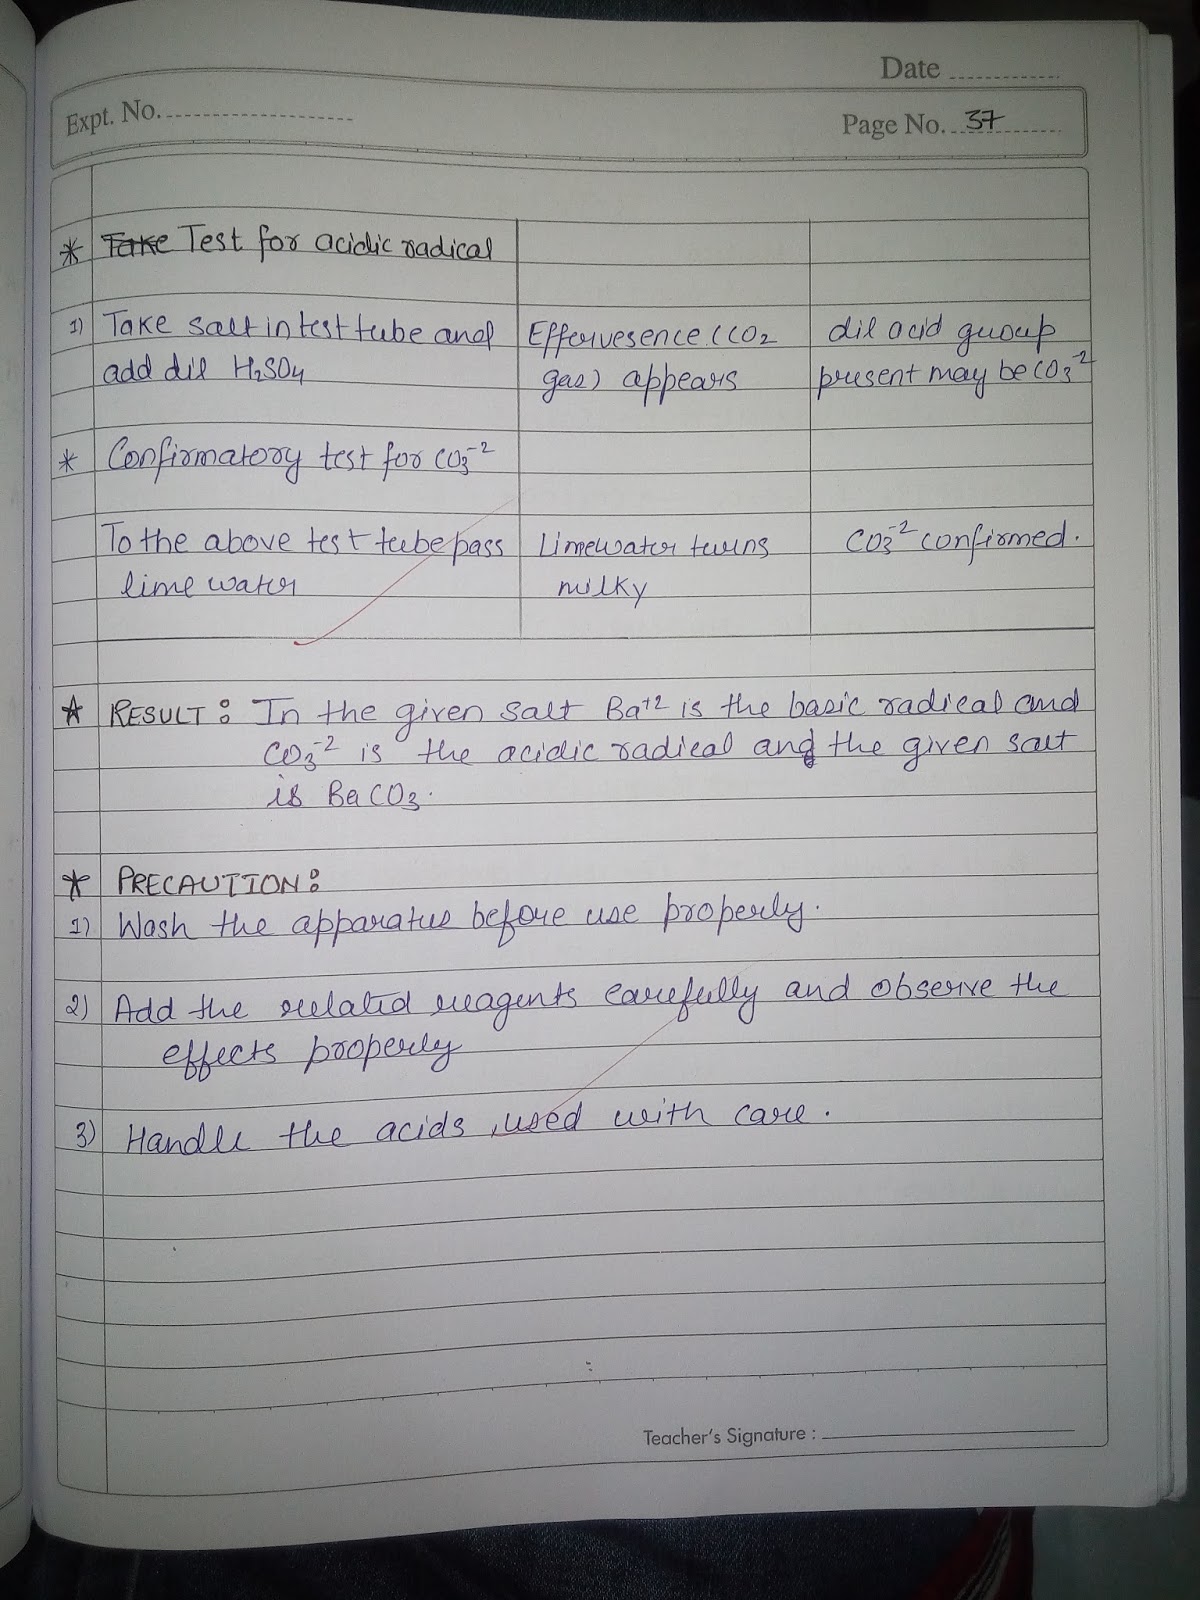 Date
Expt. No.
Page No. 37
* Take Test for acidic radical
1) Take salt in test tube and Effervesence (CO2 dil acid group
add dil H2SO4 gas) appears present may be CO3-2
* Confirmatory test for CO3-2
To the above test tube pass Limewater turns CO3-2 confirmed.
lime water milky
* RESULT: In the given salt Ba+2 is the basic radical and
CO3-2 is the acidic radical and the given salt
is BaCO3.
* PRECAUTION:
1) Wash the apparatus before use properly.
2) Add the related reagents carefully and observe the
effects properly
3) Handle the acids used with care.
Teacher's Signature :